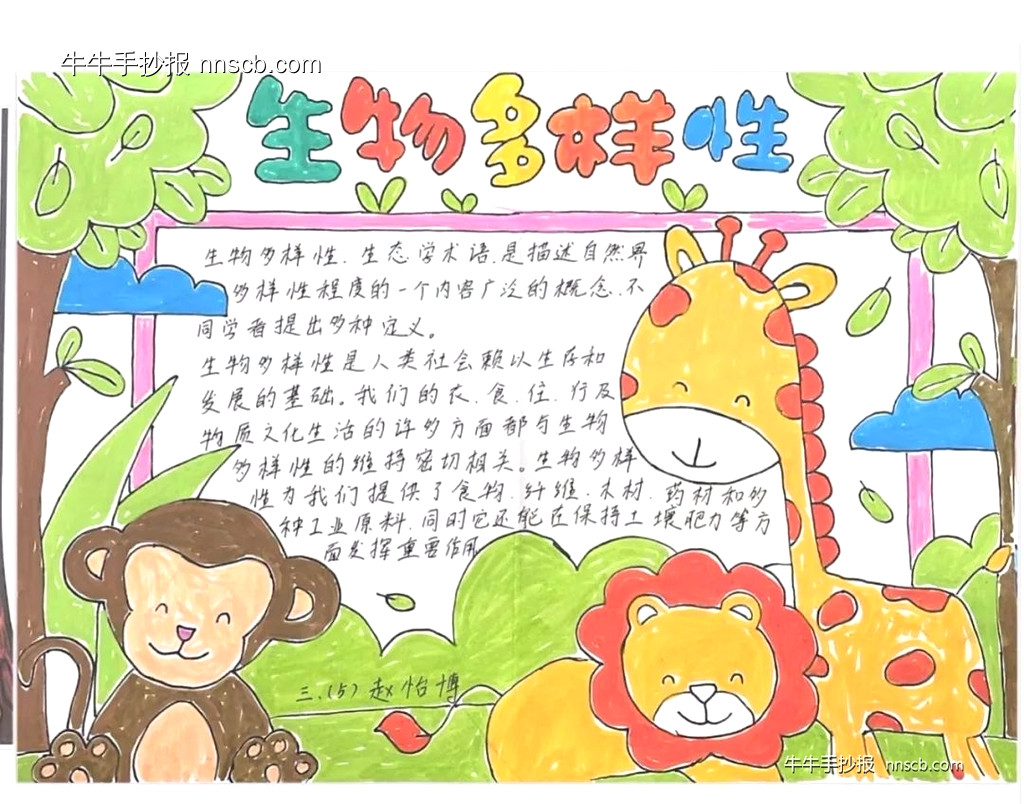 牛牛手抄报 nnscb.com
生物多样性
生物多样性、生态学术语、是描述自然界
多样性程度的一个内容广泛的概念、不
同学者提出多种定义。
生物多样性是人类社会赖以生存和
发展的基础。我们的衣、食、住、行及
物质文化生活的许多方面都与生物
多样性的维持密切相关。生物多样
性为我们提供了食物、纤维、木材、药材和多
种工业原料、同时它还能在保持土壤肥力等方
面发挥重要作用
三、(5) 赵怡博
牛牛手抄报 nnscb.com